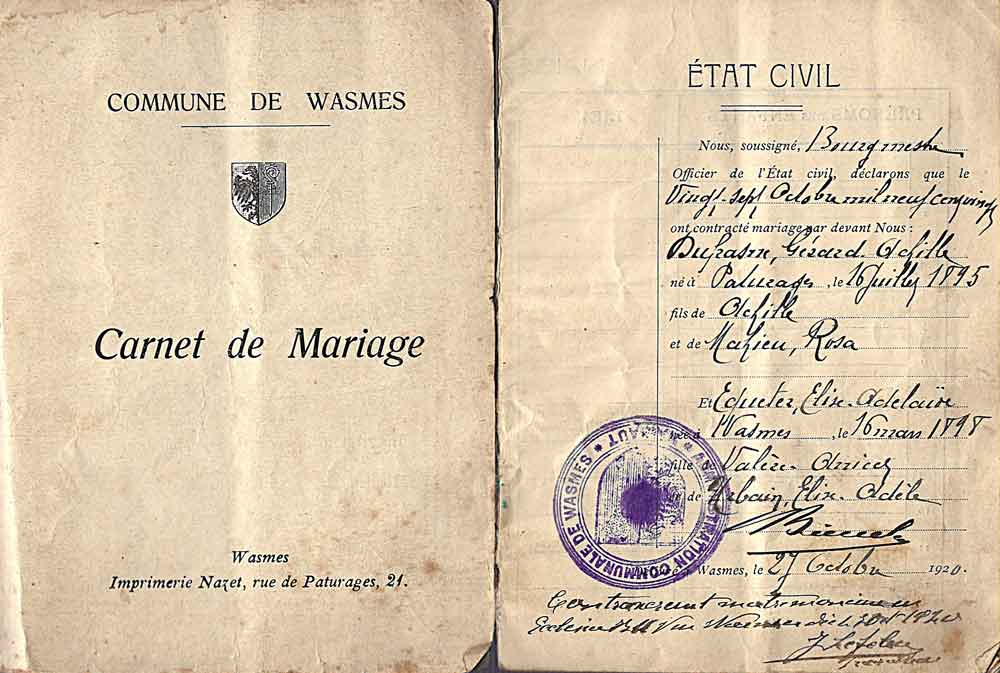 COMMUNE DE WASMES
Carnet de Mariage
Wasmes
Imprimerie Nazet, rue de Paturages, 21.
ÉTAT CIVIL
Nous, soussigné, Bourgmestre
Officier de l'État civil, déclarons que le
Vingt-sept Octobre mil neuf cent vingt
ont contracté mariage par devant Nous :
Dufrasne, Gérard-Achille
né à Paturages, le 16 Juillet 1895
fils de Achille
et de Mahieu, Rosa
Et Equeter, Elise-Adelaïre
née à Wasmes, le 16 mars 1898
fille de Valère-Amicet
et de Urbain, Elise-Adèle
Wasmes, le 27 Octobre 1920.
ADMINISTRATION COMMUNALE DE WASMES * HAINAUT *